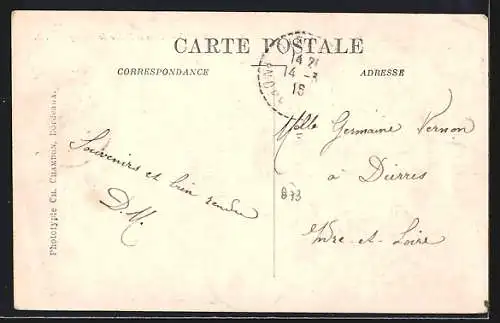 CARTE POSTALE
CORRESPONDANCE
ADRESSE
14 21
14 - 3
15
Souvenirs et bien
D. M.
Melle Germaine Vernon
à Dierres
Indre-et-Loire
893
Phototypie CH. CHAMBON, Bordeaux.